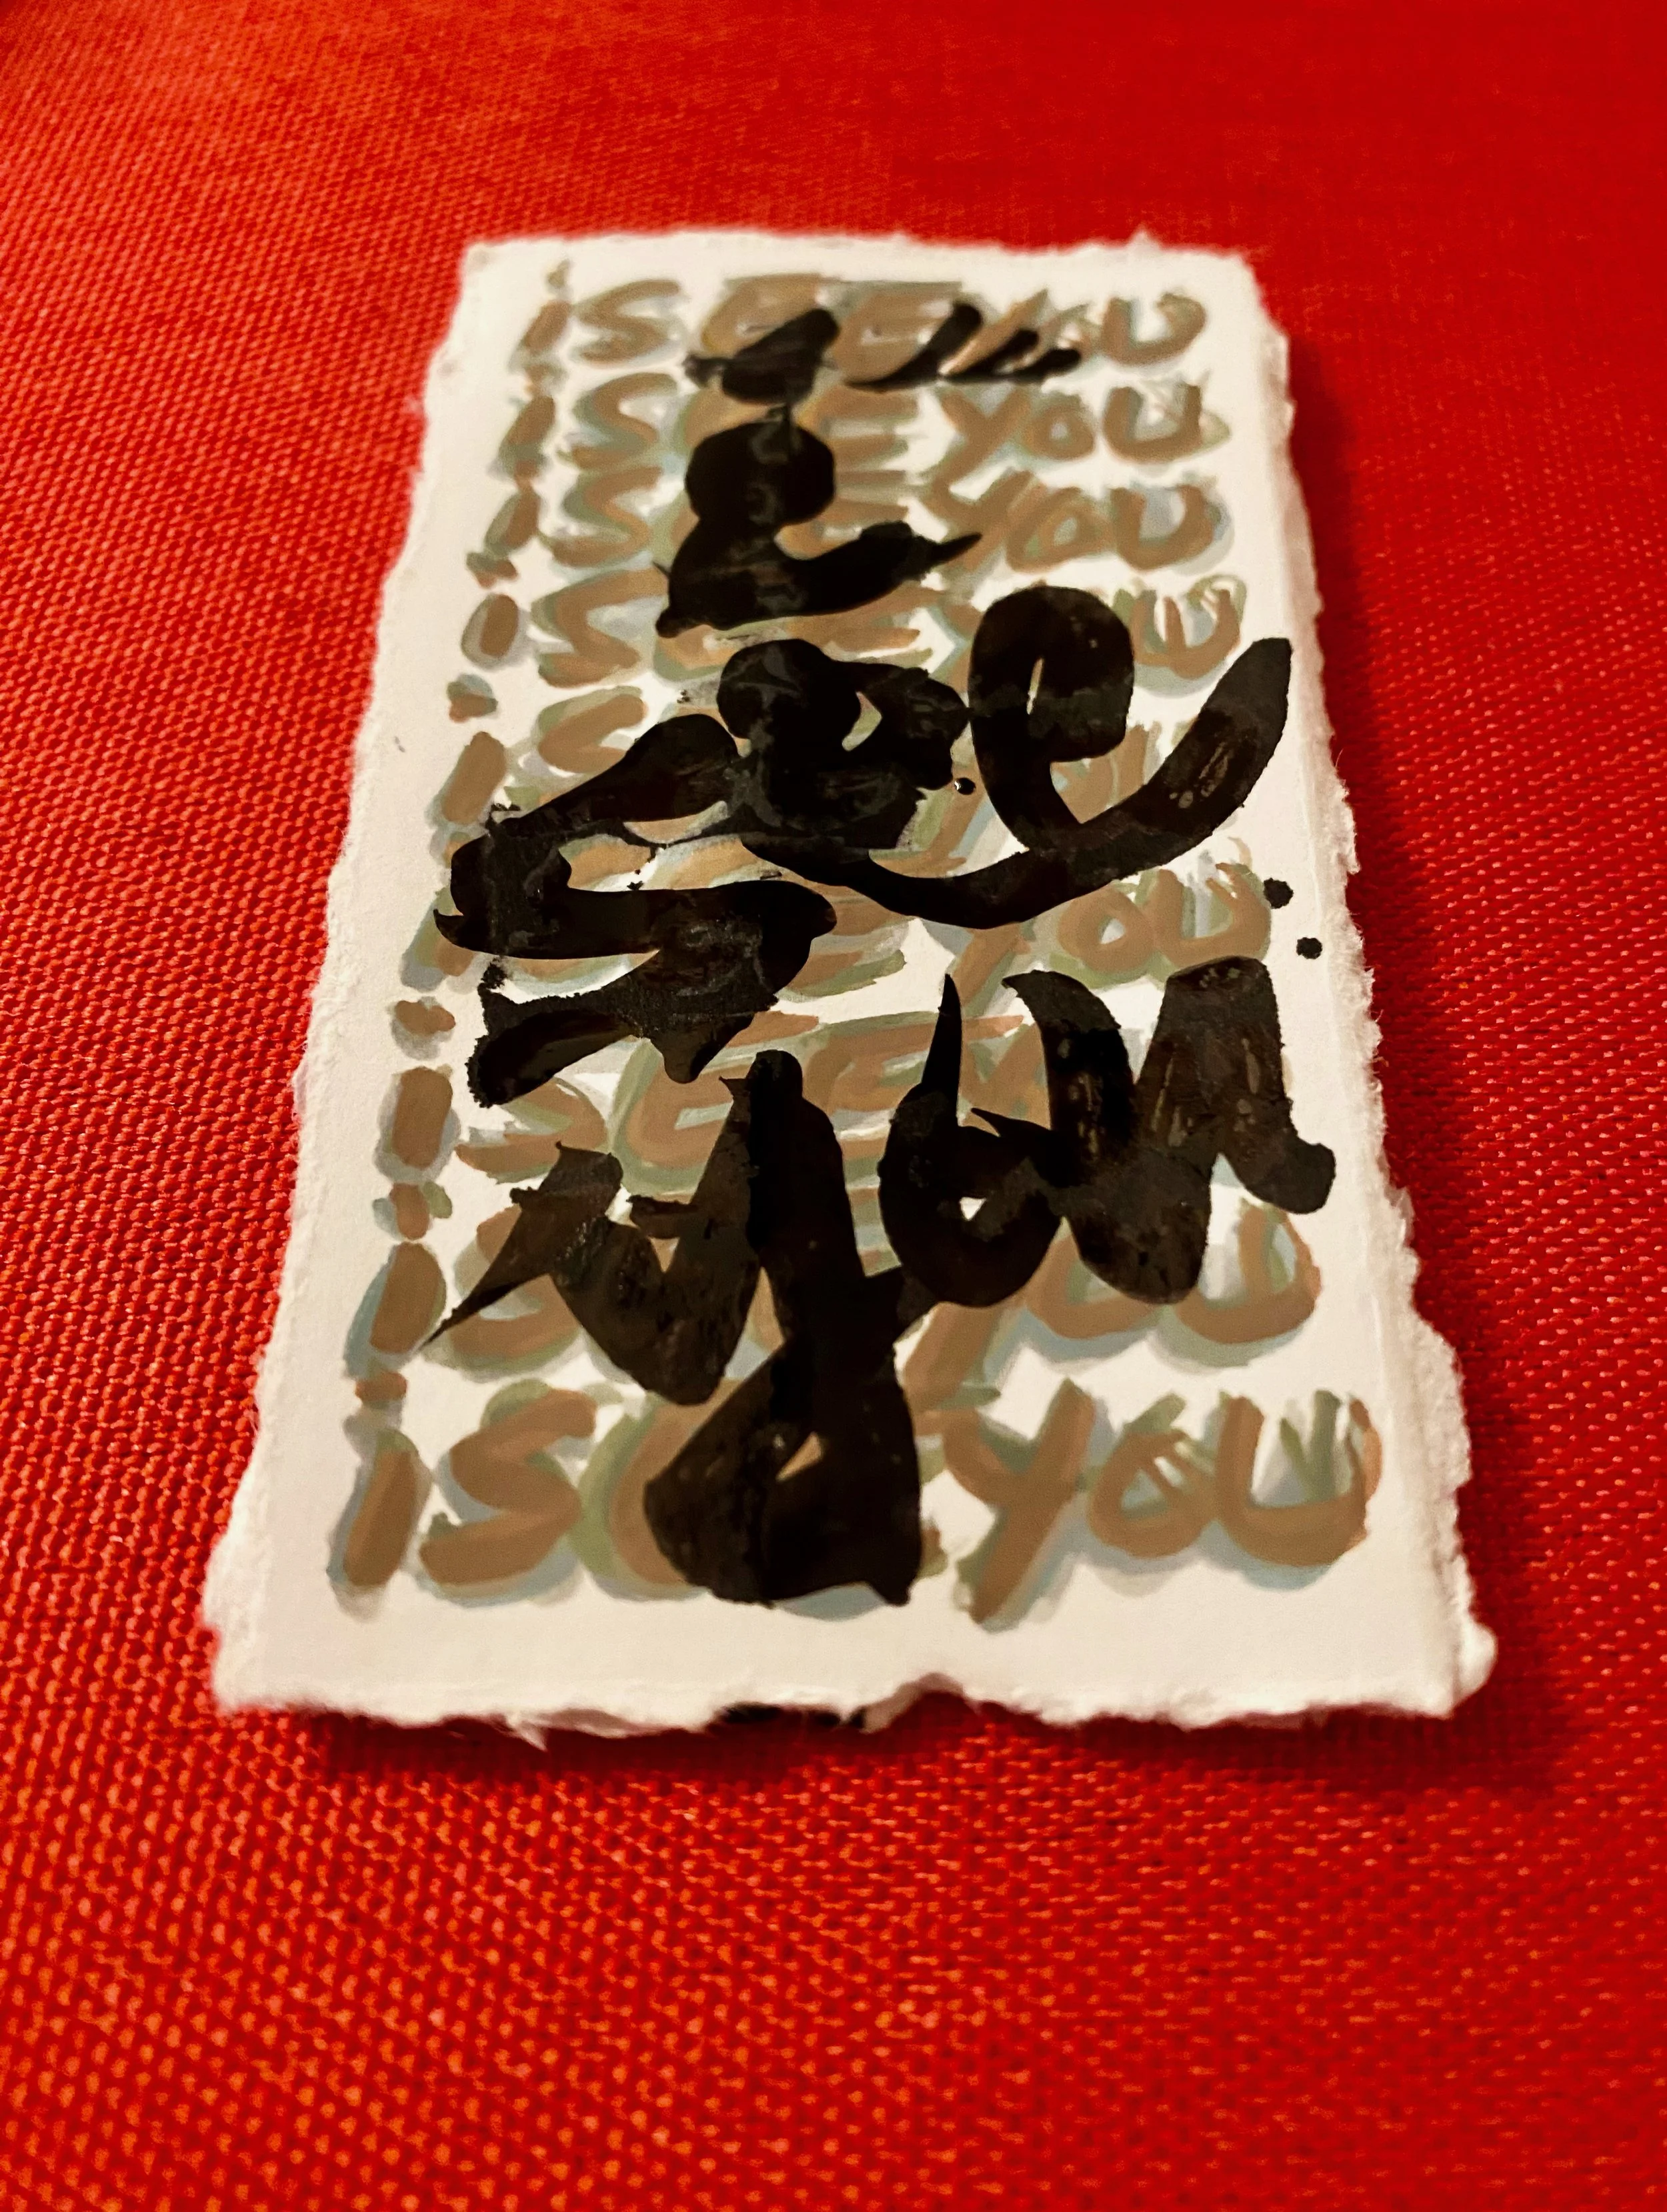 iSEE YOU
iSEE YOU
iSEE YOU
iSEE YOU
iSEE YOU
iSEE YOU
iSEE YOU
iSEE YOU
iSEE YOU
i
see
you